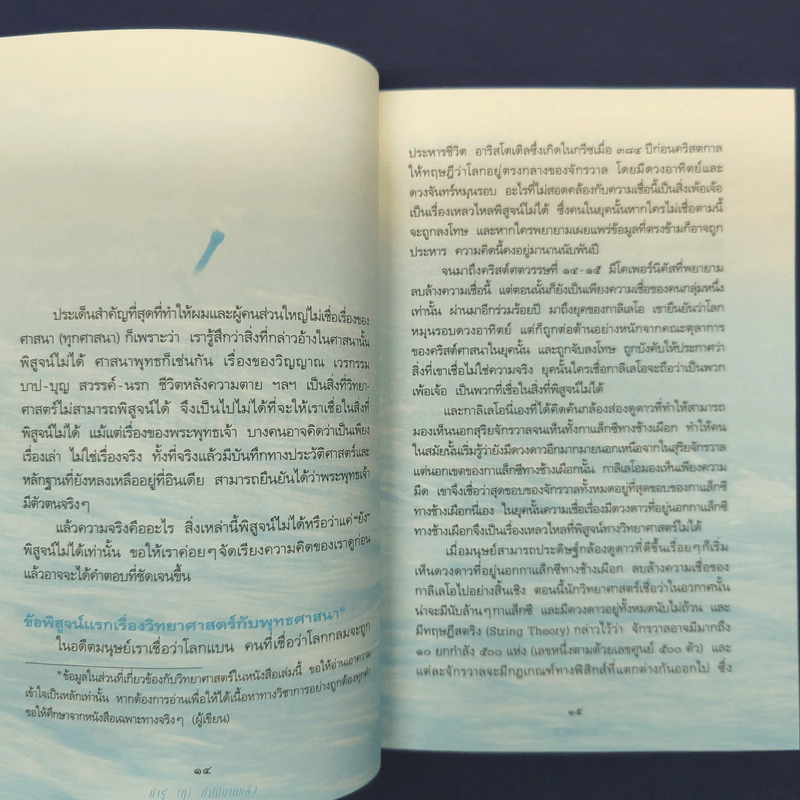 ประเด็นสำคัญที่สุดที่ทำให้ผมและผู้คนส่วนใหญ่ไม่เชื่อเรื่องของ
ศาสนา (ทุกศาสนา) ก็เพราะว่า เรารู้สึกว่าสิ่งที่กล่าวอ้างในศาสนานั้น
พิสูจน์ไม่ได้ ศาสนาพุทธก็เช่นกัน เรื่องของวิญญาณ เวรกรรม
บาป-บุญ สวรรค์-นรก ชีวิตหลังความตาย ฯลฯ เป็นสิ่งที่วิทยา-
ศาสตร์ไม่สามารถพิสูจน์ได้ จึงเป็นไปไม่ได้ที่จะให้เราเชื่อในสิ่งที่
พิสูจน์ไม่ได้ แม้แต่เรื่องของพระพุทธเจ้า บางคนอาจคิดว่าเป็นเพียง
เรื่องเล่า ไม่ใช่เรื่องจริง ทั้งที่จริงแล้วมีบันทึกทางประวัติศาสตร์และ
หลักฐานที่ยังหลงเหลืออยู่ที่อินเดีย สามารถยืนยันได้ว่าพระพุทธเจ้า
มีตัวตนจริงๆ
แล้วความจริงคืออะไร สิ่งเหล่านี้พิสูจน์ไม่ได้หรือว่าแค่ "ยัง"
พิสูจน์ไม่ได้เท่านั้น ขอให้เราค่อยๆ จัดเรียงความคิดของเราดูก่อน
แล้วอาจจะได้คำตอบที่ชัดเจนขึ้น
ข้อพิสูจน์แรกเรื่องวิทยาศาสตร์กับพุทธศาสนา*
ในอดีตมนุษย์เราเชื่อว่าโลกแบน คนที่เชื่อว่าโลกกลมจะถูก
*ข้อมูลในส่วนที่เกี่ยวข้องกับวิทยาศาสตร์ในหนังสือเล่มนี้ ขอให้อ่านเอาความ
เข้าใจเป็นหลักเท่านั้น หากต้องการอ่านเพื่อให้ได้เนื้อหาทางวิชาการอย่างถูกต้องทุกคำ
ขอให้ศึกษาจากหนังสือเฉพาะทางจริงๆ (ผู้เขียน)
๑๔
ประหารชีวิต อาริสโตเติลซึ่งเกิดในกรีซเมื่อ ๓๘๔ ปีก่อนคริสตกาล
ให้ทฤษฎีว่าโลกอยู่ตรงกลางของจักรวาล โดยมีดวงอาทิตย์และ
ดวงจันทร์หมุนรอบ อะไรที่ไม่สอดคล้องกับความเชื่อนี้เป็นสิ่งเพ้อเจ้อ
เป็นเรื่องเหลวไหลพิสูจน์ไม่ได้ ซึ่งคนในยุคนั้นหากใครไม่เชื่อตามนี้
จะถูกลงโทษ และหากใครพยายามเผยแพร่ข้อมูลที่ตรงข้ามก็อาจถูก
ประหาร ความคิดนี้คงอยู่มานานนับพันปี
จนมาถึงคริสต์ศตวรรษที่ ๑๔-๑๕ มีโคเพอร์นิคัสที่พยายาม
ลบล้างความเชื่อนี้ แต่ตอนนั้นก็ยังเป็นเพียงความเชื่อของคนกลุ่มหนึ่ง
เท่านั้น ผ่านมาอีกร่วมร้อยปี มาถึงยุคของกาลิเลโอ เขายืนยันว่าโลก
หมุนรอบดวงอาทิตย์ แต่ก็ถูกต่อต้านอย่างหนักจากคณะตุลาการ
ของคริสต์ศาสนาในยุคนั้น และถูกจับลงโทษ ถูกบังคับให้ประกาศว่า
สิ่งที่เขาเชื่อไม่ใช่ความจริง ยุคนั้นใครเชื่อกาลิเลโอจะถือว่าเป็นพวก
เพ้อเจ้อ เป็นพวกที่เชื่อในสิ่งที่พิสูจน์ไม่ได้
และกาลิเลโอนี่เองที่ได้คิดค้นกล้องส่องดูดาวที่ทำให้สามารถ
มองเห็นนอกสุริยจักรวาลจนเห็นทั้งกาแล็กซีทางช้างเผือก ทำให้คน
ในสมัยนั้นเริ่มรู้ว่ายังมีดวงดาวอีกมากมายนอกเหนือจากในสุริยจักรวาล
แต่นอกเขตของกาแล็กซีทางช้างเผือกนั้น กาลิเลโอมองเห็นเพียงความ
มืด เขาจึงเชื่อว่าสุดขอบของจักรวาลทั้งหมดอยู่ที่สุดขอบของกาแล็กซี
ทางช้างเผือกนี่เอง ในยุคนั้นความเชื่อเรื่องมีดวงดาวที่อยู่นอกกาแล็กซี
ทางช้างเผือกจึงเป็นเรื่องเหลวไหลที่พิสูจน์ทางวิทยาศาสตร์ไม่ได้
เมื่อมนุษย์สามารถประดิษฐ์กล้องดูดาวที่ดีขึ้นเรื่อยๆ ก็เริ่ม
เห็นดวงดาวที่อยู่นอกกาแล็กซีทางช้างเผือก ลบล้างความเชื่อของ
กาลิเลโอไปอย่างสิ้นเชิง ตอนนี้นักวิทยาศาสตร์เชื่อว่าในอวกาศนั้น
น่าจะมีนับล้านๆ กาแล็กซี และมีดวงดาวอยู่ทั้งหมดนับไม่ถ้วน และ
มีทฤษฎีสตริง (String Theory) กล่าวไว้ว่า จักรวาลอาจมีมากถึง
๑๐ ยกกำลัง ๕๐๐ แห่ง (เลขหนึ่งตามด้วยเลขศูนย์ ๕๐๐ ตัว) และ
แต่ละจักรวาลจะมีกฎเกณฑ์ทางฟิสิกส์ที่แตกต่างกันออกไป ซึ่ง
๑๕